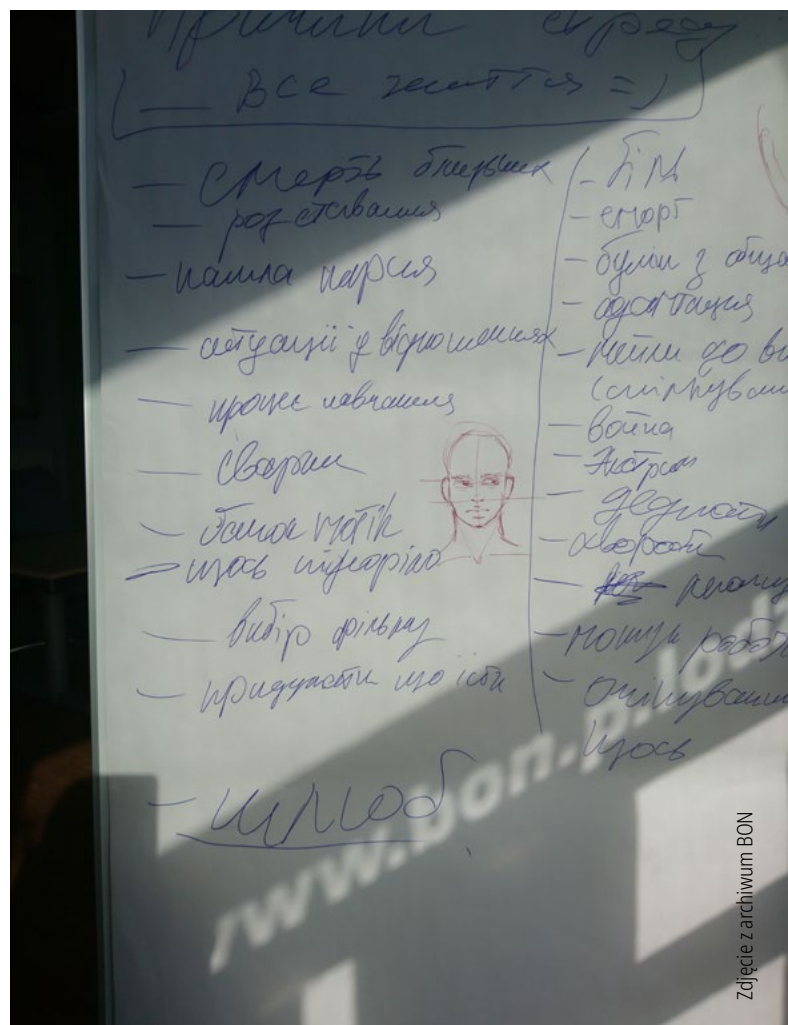 Причини стресу
— Все життя =)
— смерть близьких
— розставання
— нашла парня
— ситуації у відношеннях
— процес навчання
— сварки
— банок потік
— щось згоріло
— вибір фільму
— придумати що їсти
— шлюб
— біль
— спорт
— булінг з
— адаптація
— война
— Экстрим
— дедлайн
— хвороби
— пошук роботи
— Очікування
щось
www.bon.p.lodz
Zdjęcie z archiwum BON